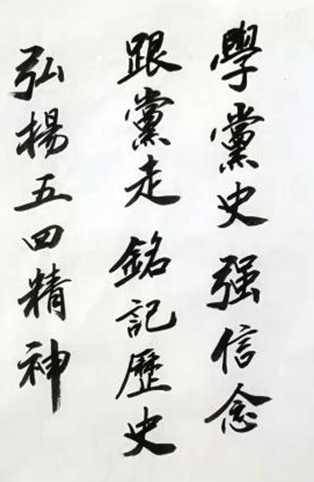 學黨史强信念
跟黨走銘記歷史
弘揚五四精神